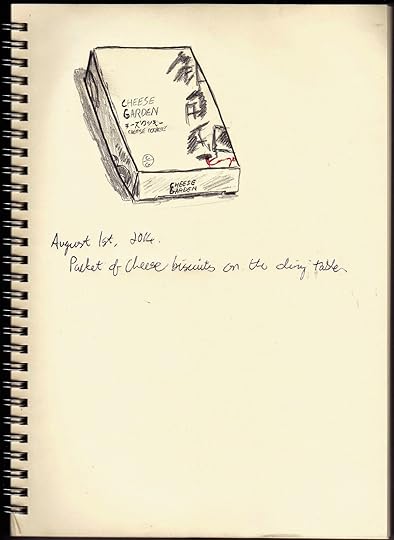 CHEESE
GARDEN
チーズクッキー
CHEESE COOKIES
CHEESE
GARDEN
August 1st, 2014.
Packet of Cheese biscuits on the table